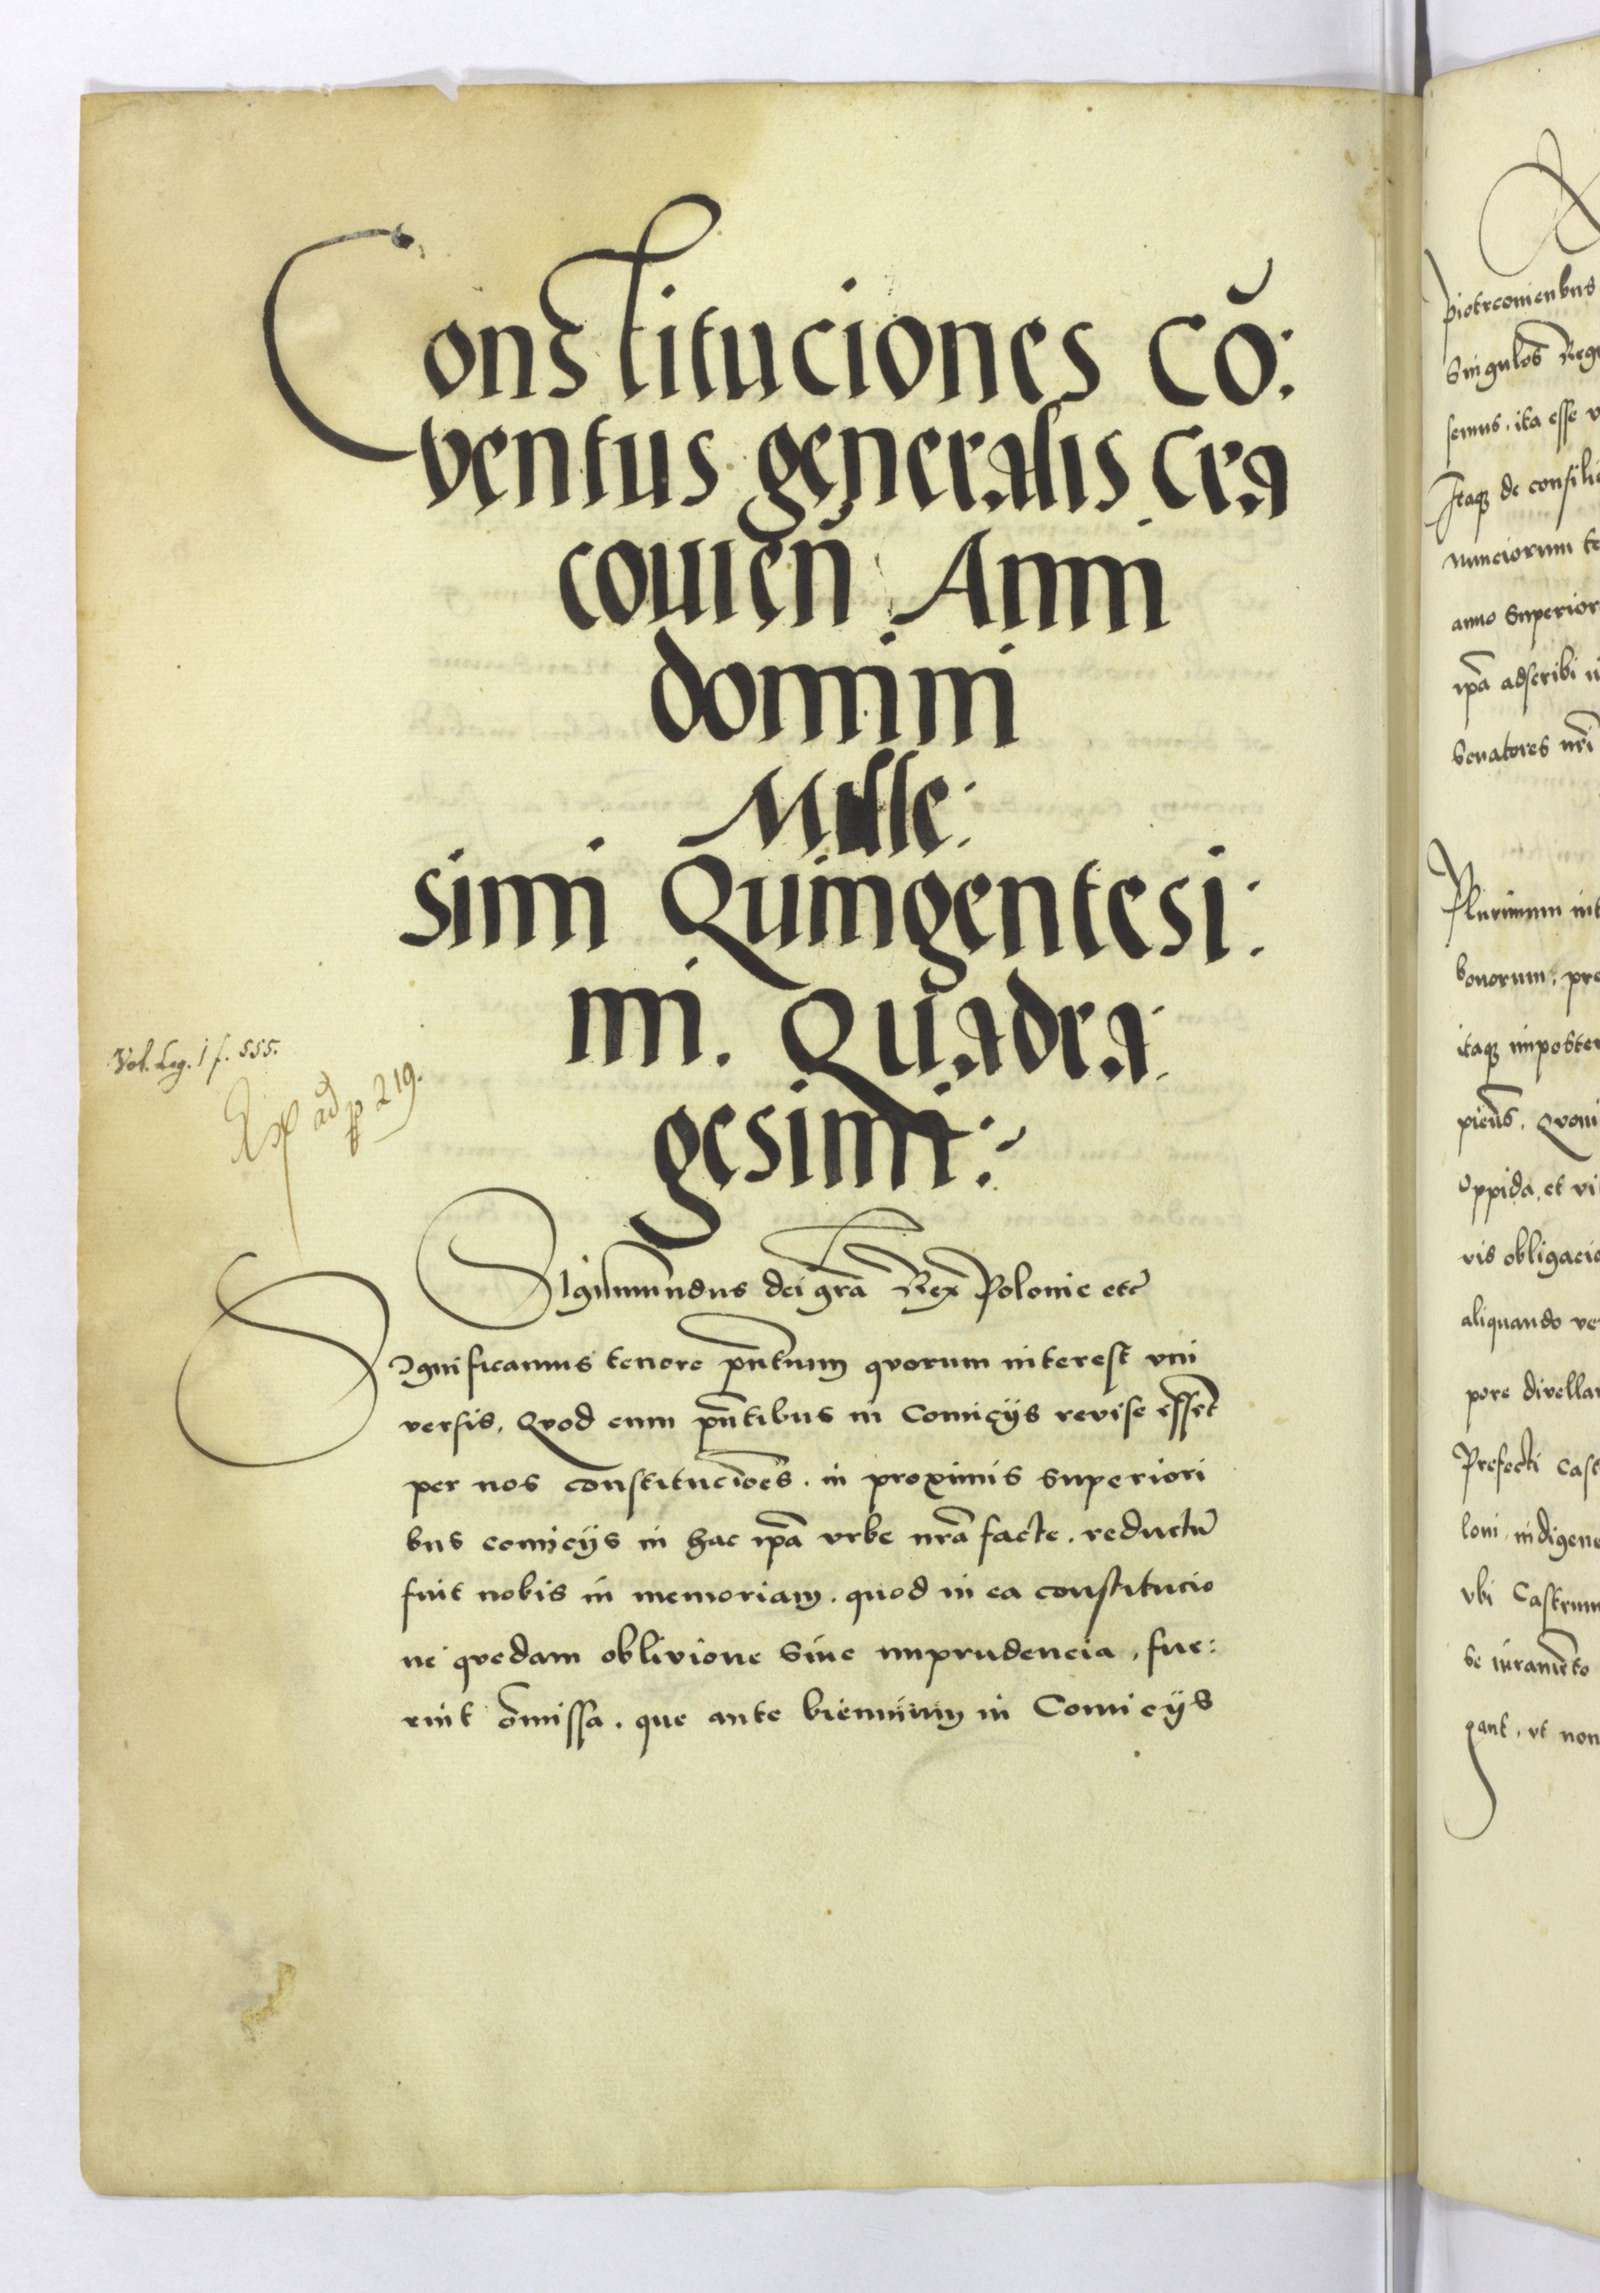 Constituciones cō:
ventus generalis Cra
couień Anni
domini
Mille:
simi Quingentesi:
mi. Quadra:
gesimi:~
Vol. Leg. 1 f. 555.
ad p 219.
Sigismundus dei grā Rex Polonie etc̄
Significamus tenore pn̄tium quorum interest vni
versis, Quod cum pn̄tibus in Comicijs revise essēt
per nos constitucioēs. in proximis superiori
bus comicijs in hac ipā vrbe nrā facte. reductū
fuit nobis in memoriam. quod in ea constitucio
ne quedam oblivione siue imprudencia, fue:
rint ōmissa. que ante biennium in Comicijs
piotrconienbus
Singulos
semus, ita esse
Itaq de
nunciorum
anno Superior
ipā adscribi
Senatores nrī
Plurimum
bonorum,
itaq
Oppida, et
vis
aliquando
pore
Prefecti
loni, indigene
vbi Castrum
se iuramēto
gant, vt non